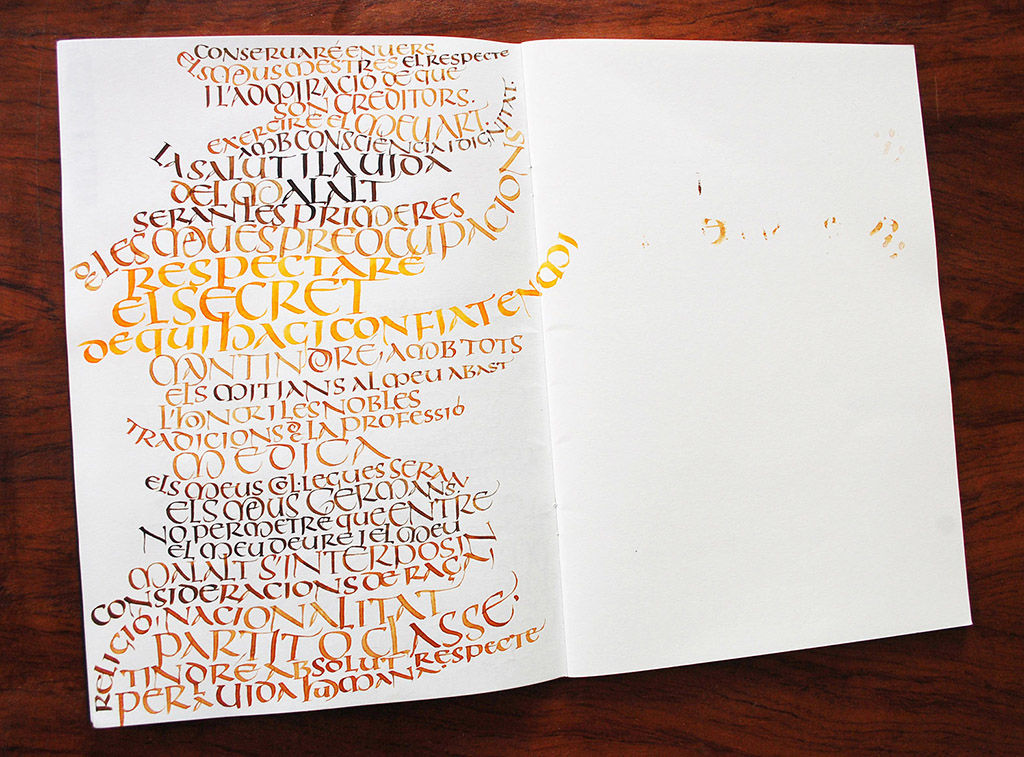 CONSERVARÉ ENVERS
ELS MEUS MESTRES EL RESPECTE
I L'ADMIRACIÓ DE QUE
SON CREDITORS.
EXERCIRÉ EL MEU ART
AMB CONSCIÈNCIA I DIGNITAT.
LA SALUT I LA VIDA
DEL MALALT
SERAN LES PRIMERES
DE LES MEUES PREOCUPACIONS
RESPECTARÉ
EL SECRET
DE QUI HAGI CONFIAT EN MI
MANTINDRE, AMB TOTS
ELS MITJANS AL MEU ABAST
L'HONOR I LES NOBLES
TRADICIONS DE LA PROFESSIÓ
MEDICA
ELS MEUS COL·LEGUES SERAN
ELS MEUS GERMANS.
NO PERMETRÉ QUE ENTRE
EL MEU DEURE I EL MEU
MALALT S'INTERPOSIN
CONSIDERACIONS DE RAÇA,
RELIGIÓ, NACIONALITAT
PARTIT O CLASSE.
TINDRE ABSOLUT RESPECTE
PER A VIDA HUMANA.